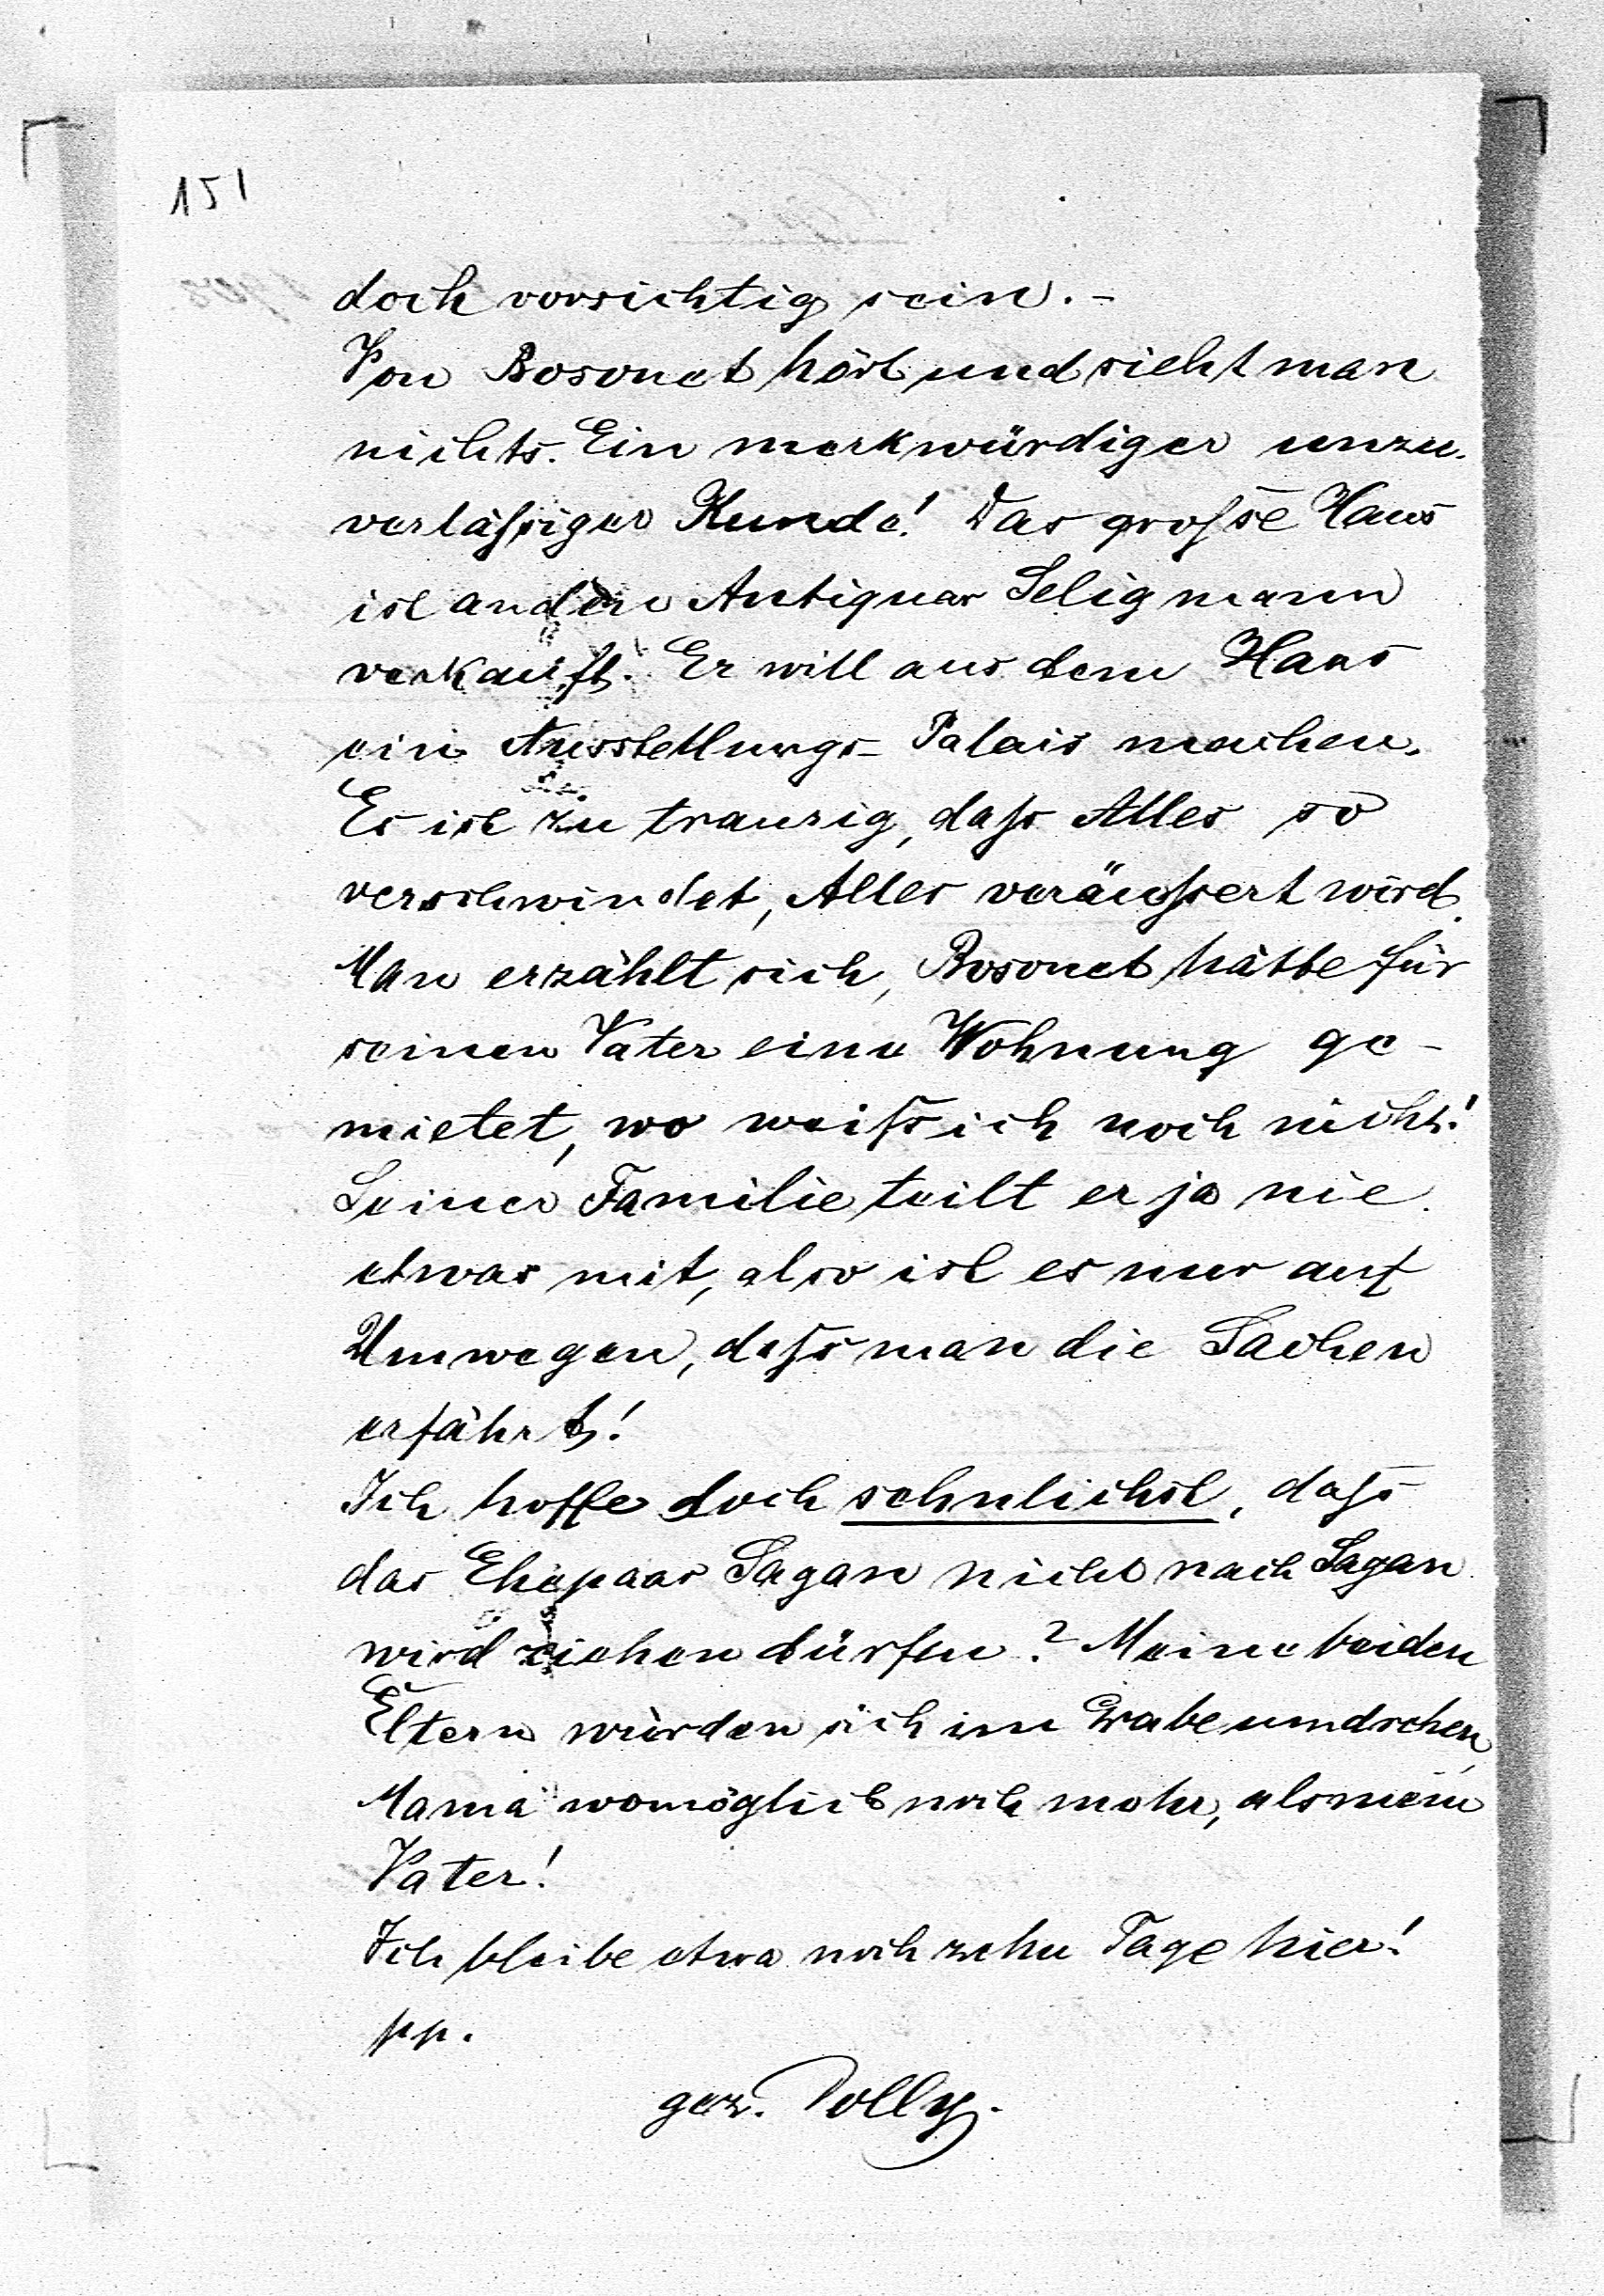 151
doch vorsichtig sein. -
Von Bosonet hört und sieht man
nichts. Ein merkwürdiger unzu-
verläßiger Kunde! Das große Haus
ist an den Antiquar Seligmann
verkauft. Er will aus dem Haus
ein Ausstellungs-Palais machen.
Es ist zu traurig, daß Alles so
verschwindet, Alles veräußert wird.
Man erzählt sich, Bosonet hätte für
seinen Vater eine Wohnung ge-
mietet, wo weiß ich noch nicht!
Seiner Familie teilt er ja nie
etwas mit, also ist es nur auf
Umwegen, daß man die Sachen
erfährt!
Ich hoffe doch sehnlichst, daß
das Ehepaar Sagan nicht nach Sagan
wird ziehen dürfen? Meine beiden
Eltern würden sich im Grabe umdrehen,
Mama womöglich noch mehr, als mein
Vater!
Ich bleibe etwa noch zehn Tage hier!
pp.
gez. Dolly.